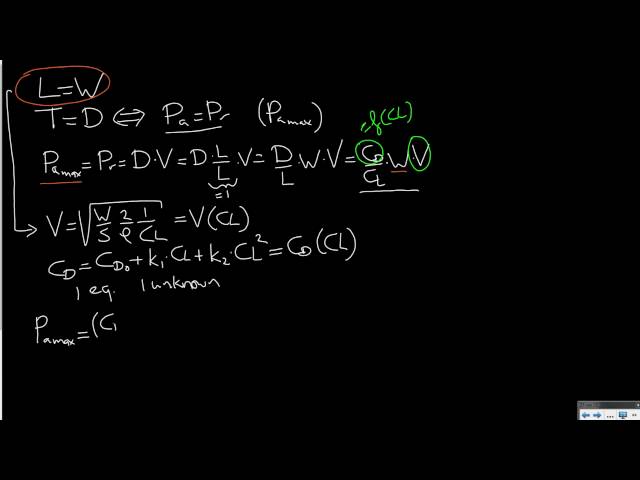 =f(CL)
L=W
T=D ⇔ Pa=Pr (Pamax)
Pamax=Pr=D·V=D·L/L·V=D/L·W·V=CD/CL·W·V
=1
V=√(W/S 2/ρ 1/CL)=V(CL)
CD=CD0+k1·CL+k2·CL²=CD(CL)
1 eq. 1 unknown
Pamax=(C